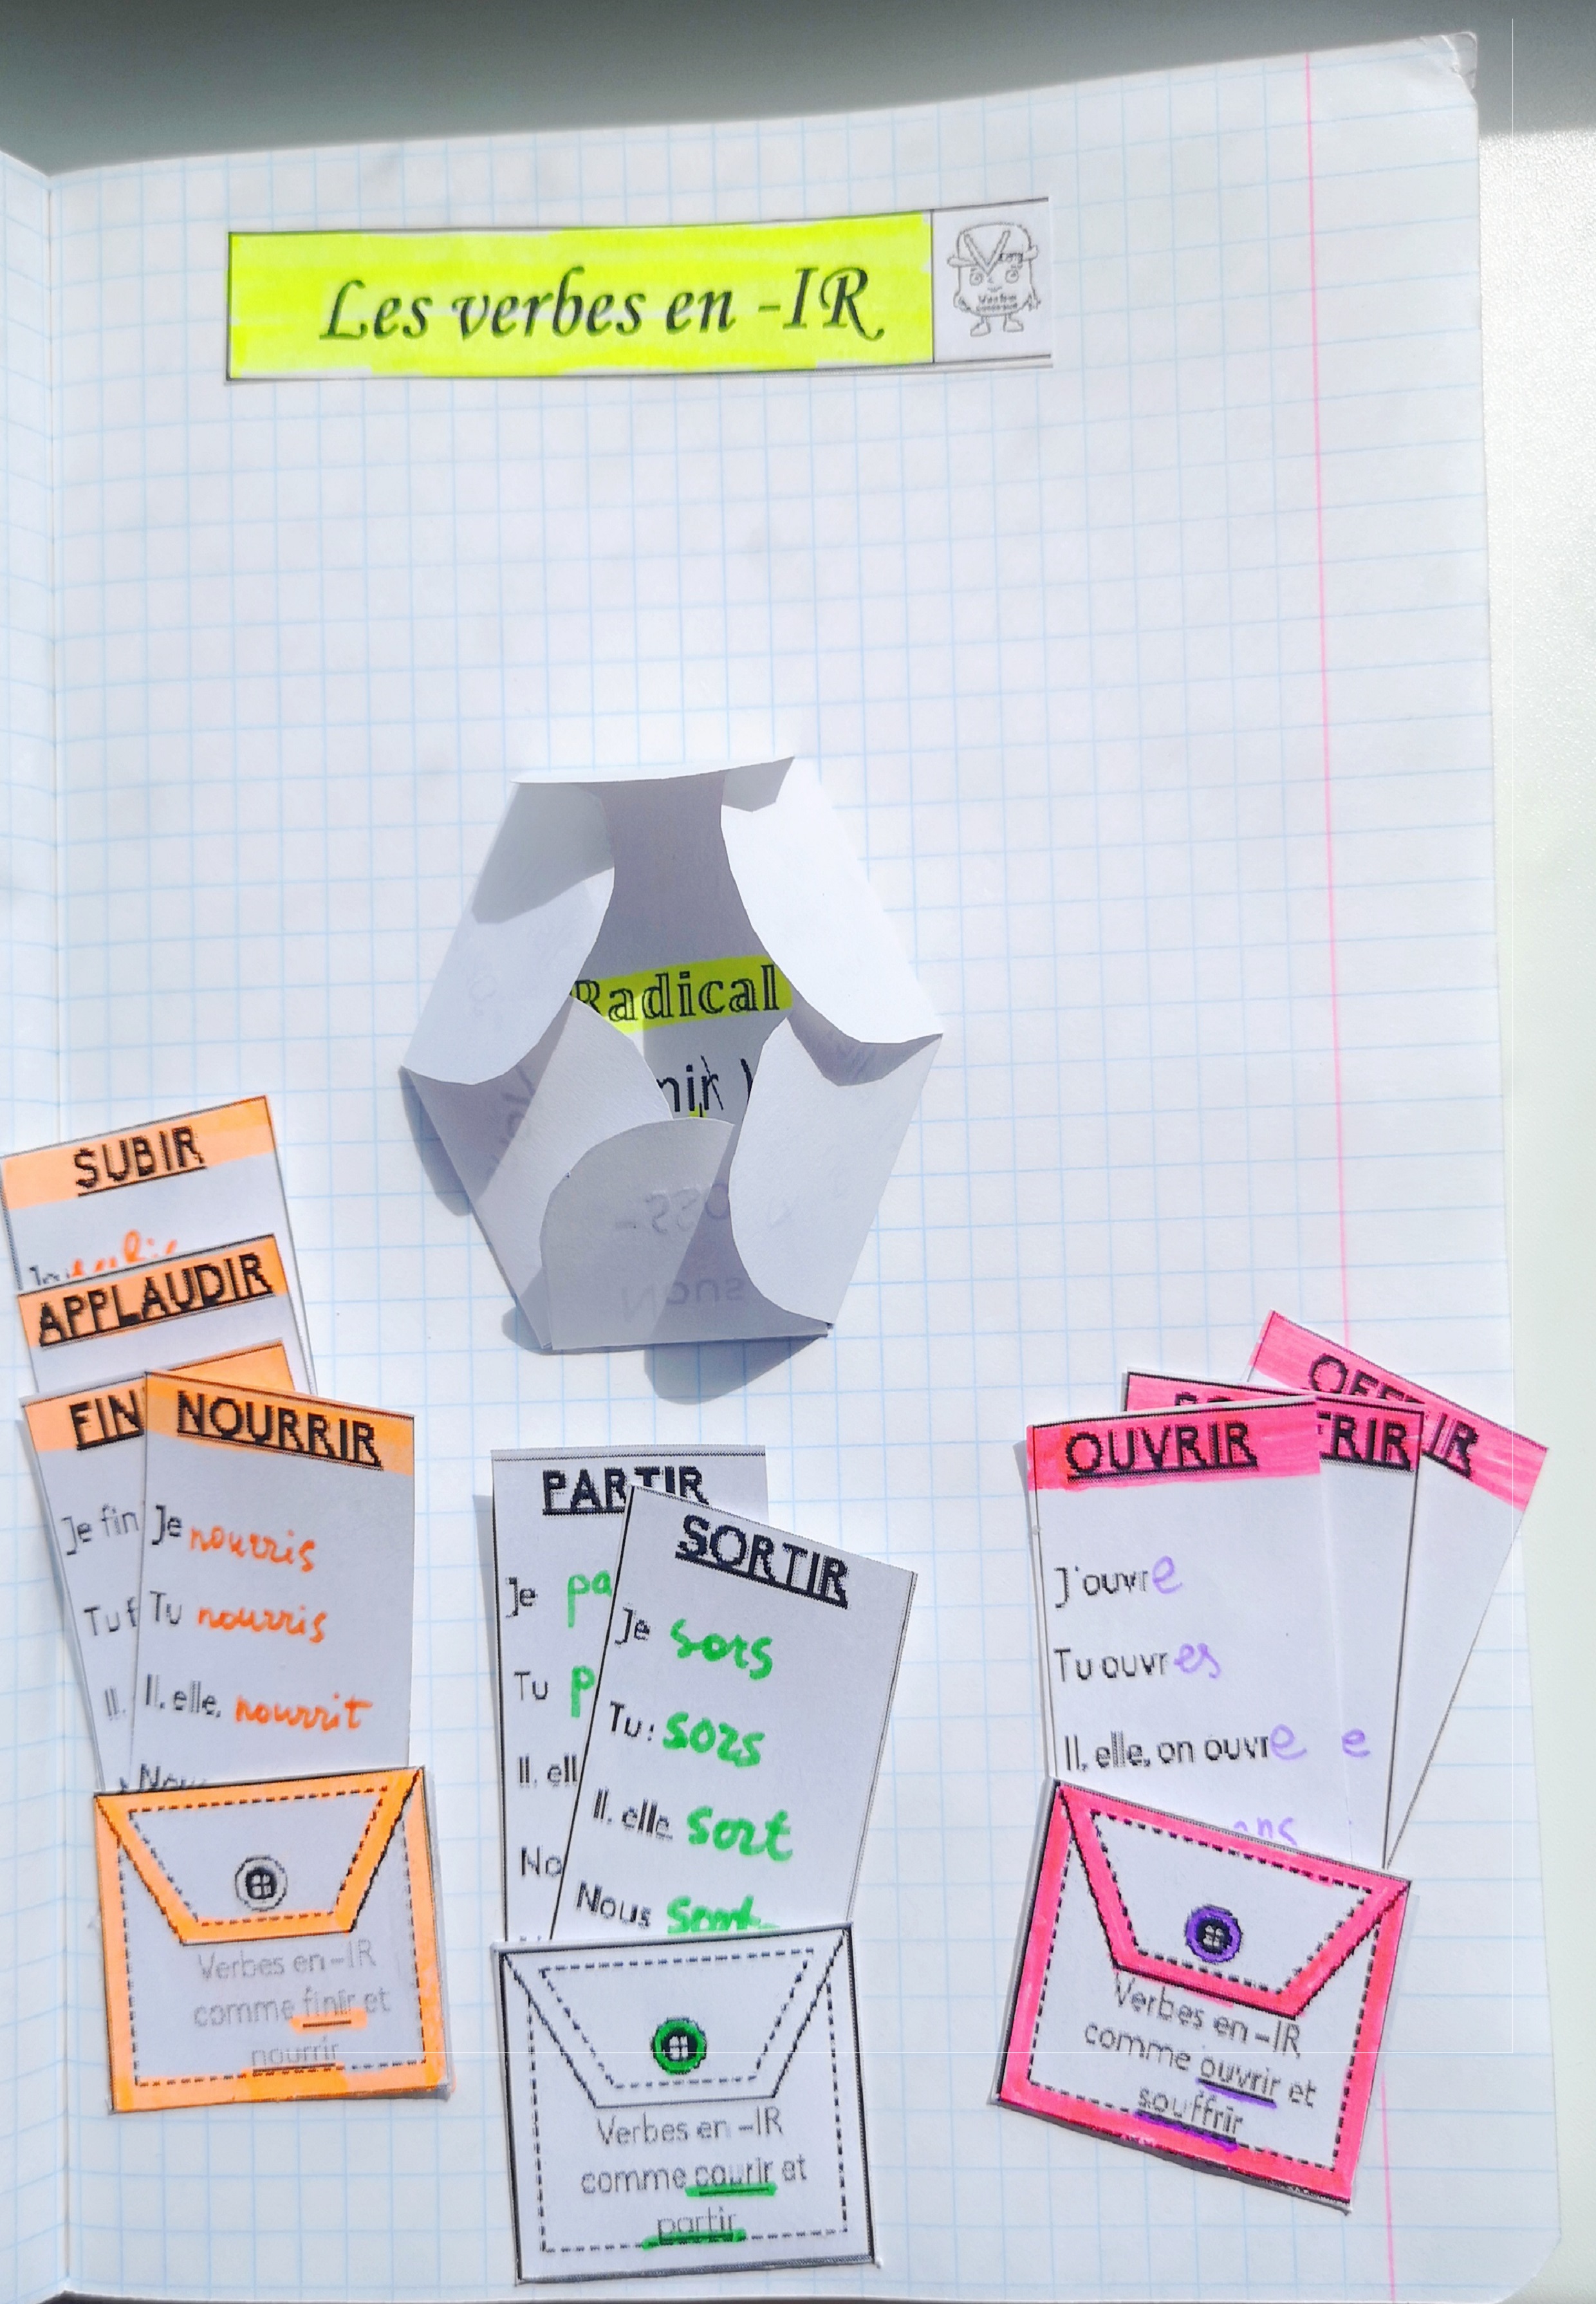 Les verbes en -IR
Radical
nir
SUBIR
APPLAUDIR
FIN
Je fin
Tu f
Il.
NOURRIR
Je nourris
Tu nourris
Il, elle, nourrit
Verbes en -IR
comme finir et
nourrir
PARTIR
Je pa
Tu p
Il, ell
No
SORTIR
Je sors
Tu: sors
Il, elle sort
Nous
Verbes en -IR
comme courir et
partir
OFFRIR
FRIR
OUVRIR
J'ouvre
Tu ouvres
Il, elle, on ouvre e
ons
Verbes en -IR
comme ouvrir et
souffrir